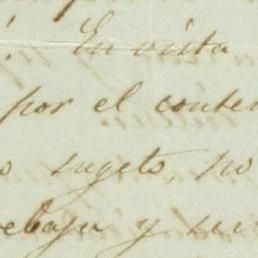 ! En vista
por el conte
o sugeto, no
ebaja y se